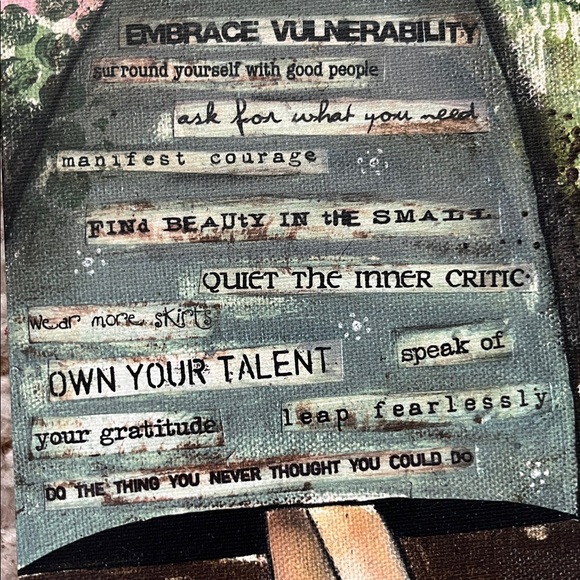 EMBRACE VULNERABILITY
surround yourself with good people
ask for what you need
manifest courage
FINd BEAUtY IN tHE SMALL
QUIET THE INNER CRITIC
wear more skirts
OWN YOUR TALENT
speak of
your gratitude
leap fearlessly
DO THE THING YOU NEVER THOUGHT YOU COULD DO